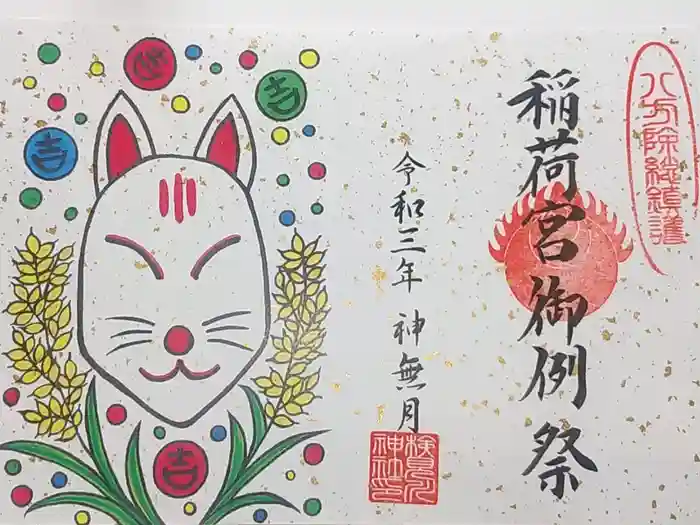 八方除総鎮護
稲荷宮御例祭
令和三年 神無月
検見川
神社印
吉
吉
吉